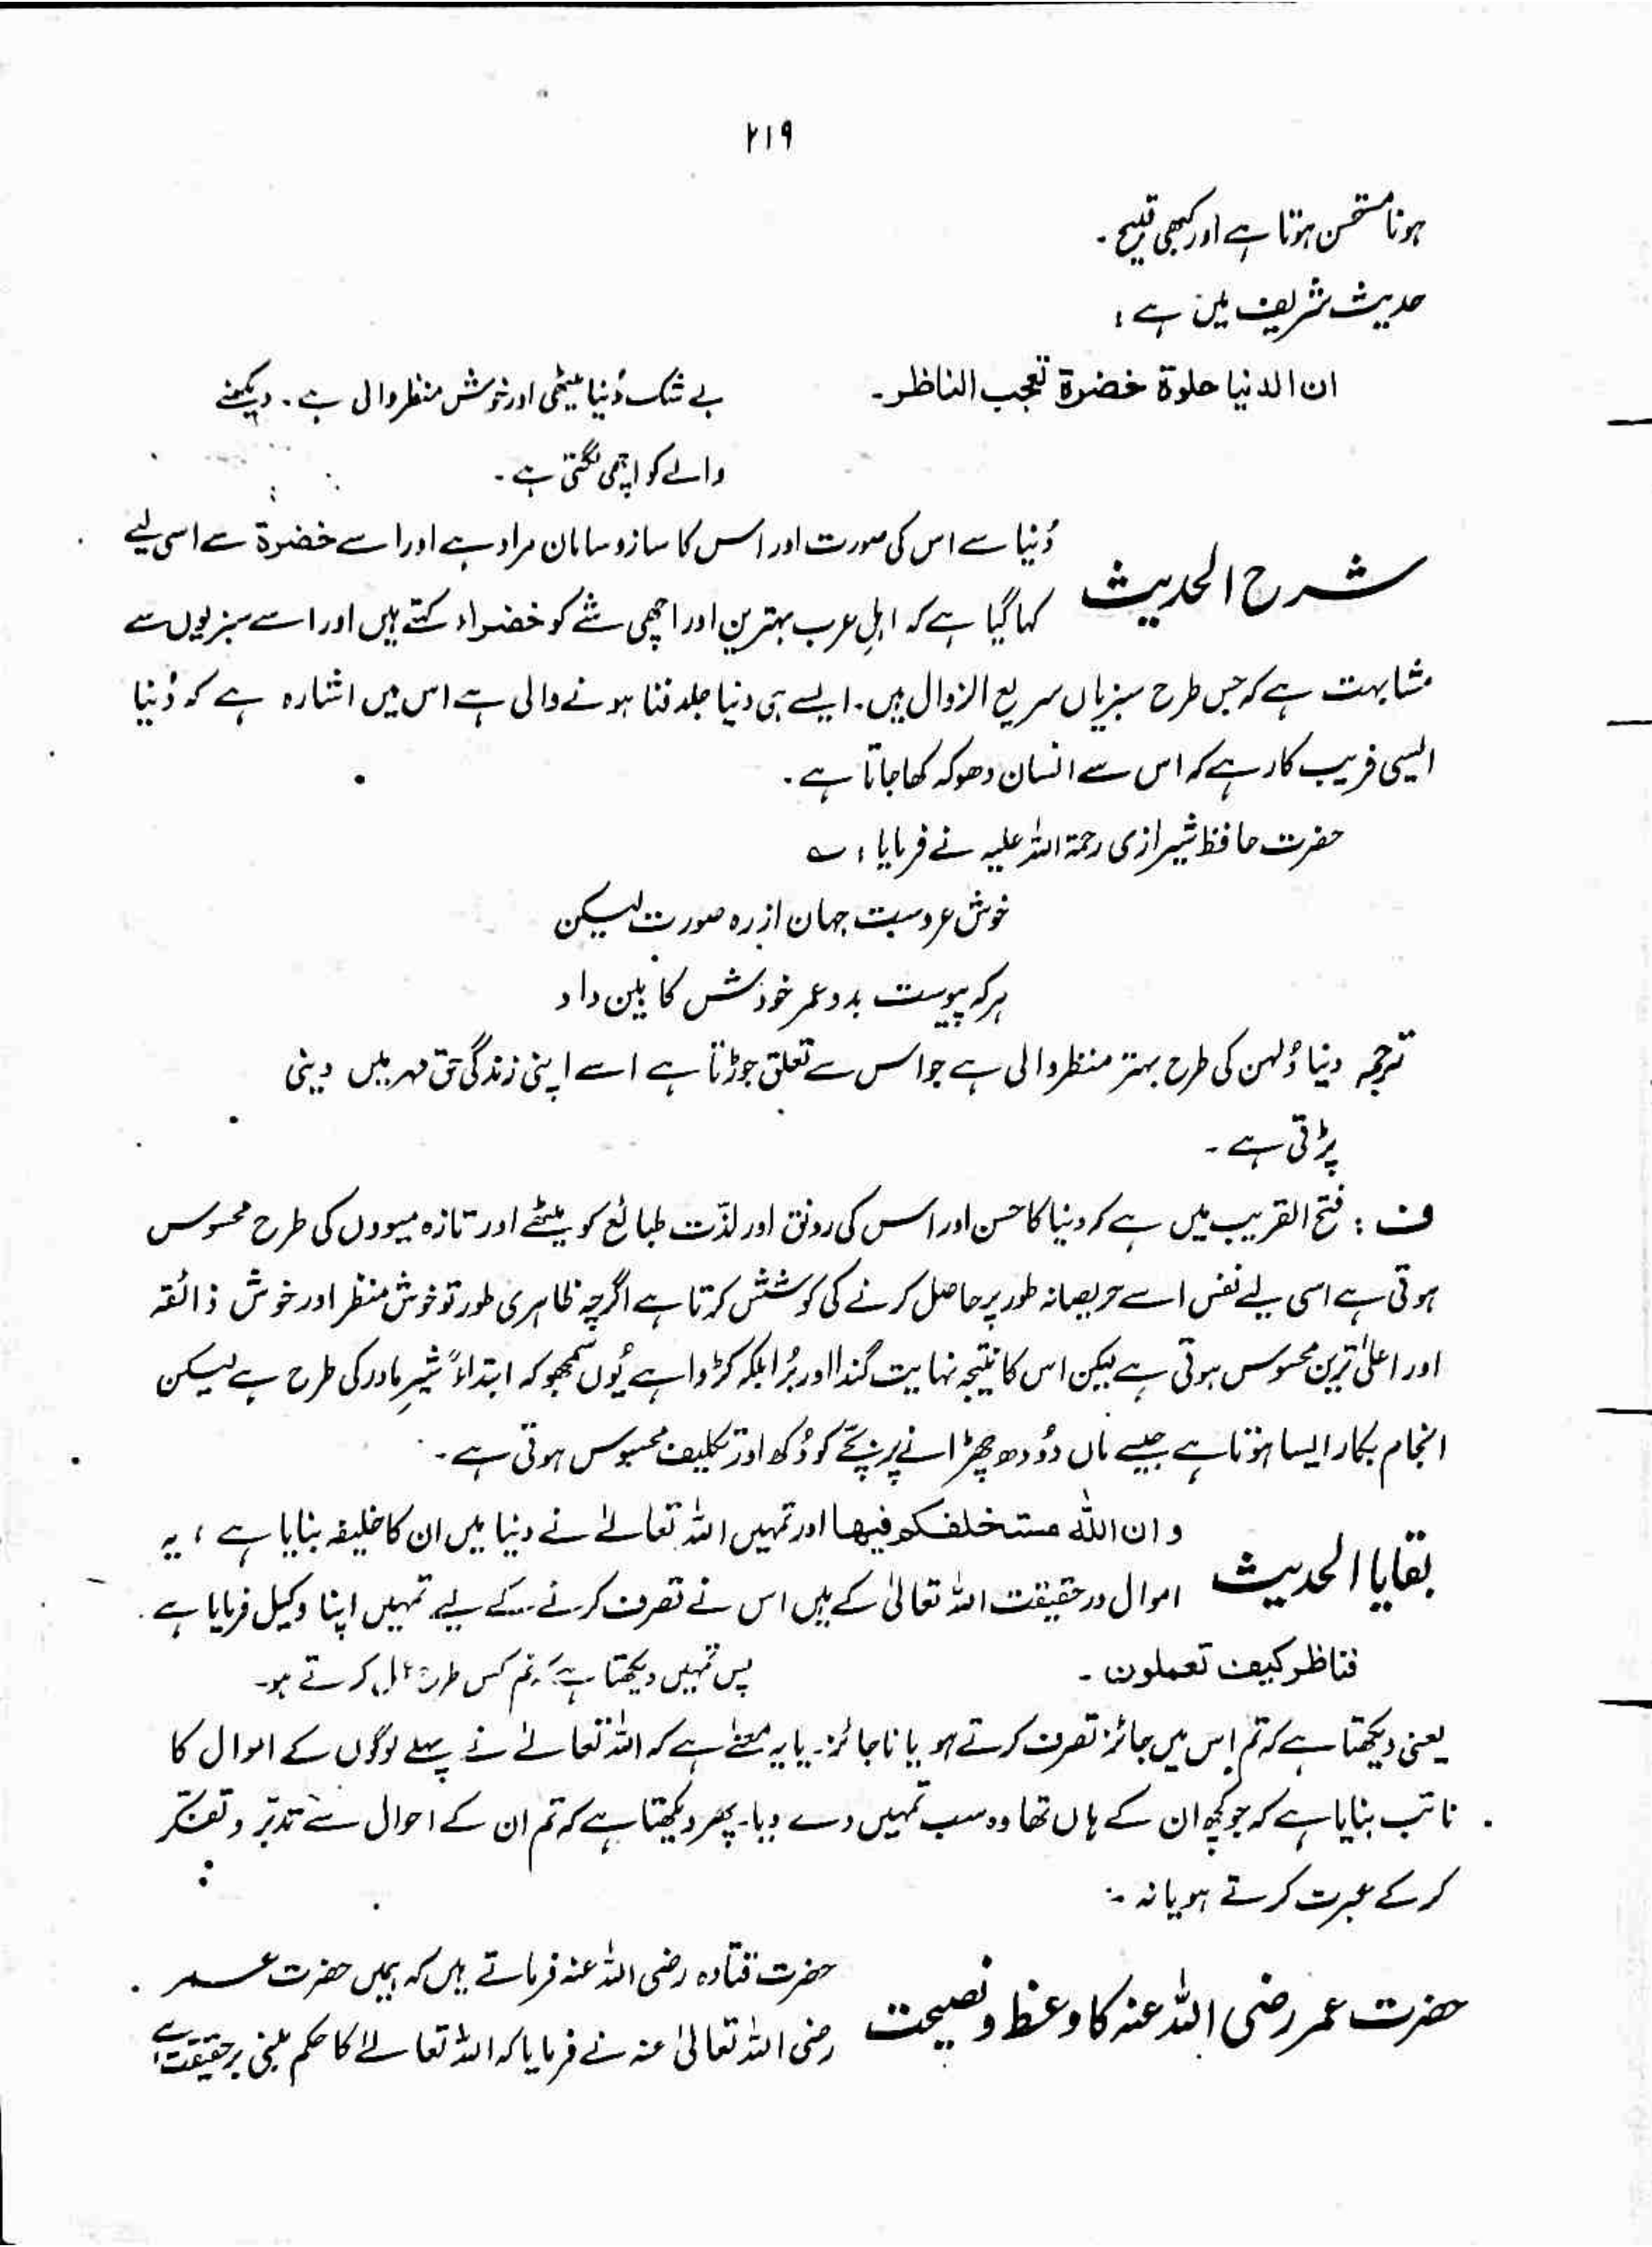 ۲۱۹
ہونا مستحسن ہوتا ہے اور کبھی قبیح ۔
حدیث شریف میں ہے :
ان الدنیا حلوۃ خضرۃ تعجب الناظر۔
بے شک دُنیا میٹھی اور خوش منظر والی ہے ۔ دیکھنے
والے کو اچھی لگتی ہے ۔
شرح الحدیث
دُنیا سے اس کی صورت اور اس کا ساز و سامان مراد ہے اور اسے خضرۃ سے اسی لیے
کہا گیا ہے کہ اہلِ عرب بہترین اور اچھی شے کو خضراء کہتے ہیں اور اسے سبزیوں سے
مشابہت ہے کہ جس طرح سبزیاں سریع الزوال ہیں ۔ ایسے ہی دنیا جلد فنا ہونے والی ہے اس میں اشارہ ہے کہ دُنیا
ایسی فریب کار ہے کہ اس سے انسان دھوکہ کھا جاتا ہے ۔
حضرت حافظ شیرازی رحمۃ اللہ علیہ نے فرمایا : ؎
خوش عروسیت جہان از رہ صورت لیکن
ہر کہ پیوست بدو عمر خودش کابین داد
ترجمہ دنیا دُلہن کی طرح بہتر منظر والی ہے جو اس سے تعلق جوڑتا ہے اسے اپنی زندگی حق مہر میں دینی
پڑتی ہے ۔
ف : فتح القریب میں ہے کہ دنیا کا حسن اور اس کی رونق اور لذّت طبائع کو میٹھے اور تازہ میووں کی طرح محسوس
ہوتی ہے اسی لیے نفس اسے حریصانہ طور پر حاصل کرنے کی کوشش کرتا ہے اگرچہ ظاہری طور تو خوش منظر اور خوش ذائقہ
اور اعلیٰ ترین محسوس ہوتی ہے لیکن اس کا نتیجہ نہایت گندا اور بُرا بلکہ کڑوا ہے یُوں سمجھو کہ ابتداءً شیرِ مادر کی طرح ہے لیکن
انجام بکار ایسا ہوتا ہے جیسے ماں دُودھ چھڑانے پر بچّے کو دُکھ اور تکلیف محسوس ہوتی ہے ۔
بقایا الحدیث
و ان اللہ مستخلفکم فیھا اور تمہیں اللہ تعالےٰ نے دنیا میں ان کا خلیفہ بنایا ہے ؛ یہ
اموال درحقیقت اللہ تعالیٰ کے ہیں اس نے تصرف کرنے کے لیے تمہیں اپنا وکیل فرمایا ہے ۔
فناظر کیف تعملون ۔
پس تمہیں دیکھتا ہے کہ تم کس طرح عمل کرتے ہو۔
یعنی دیکھتا ہے کہ تم اس میں جائز تصرف کرتے ہو یا ناجائز۔ یا یہ معنےٰ ہے کہ اللہ تعالےٰ نے پہلے لوگوں کے اموال کا
نائب بنایا ہے کہ جو کچھ ان کے ہاں تھا وہ سب تمہیں دے دیا۔ پھر دیکھتا ہے کہ تم ان کے احوال سے تدبّر و تفکّر
کر کے عبرت کرتے ہو یا نہ ۔
حضرت عمر رضی اللہ عنہ کا وعظ و نصیحت
حضرت قتادہ رضی اللہ عنہ فرماتے ہیں کہ ہمیں حضرت عمر
رضی اللہ تعالیٰ عنہ نے فرمایا کہ اللہ تعالےٰ کا حکم مبنی بر حقیقت ہے